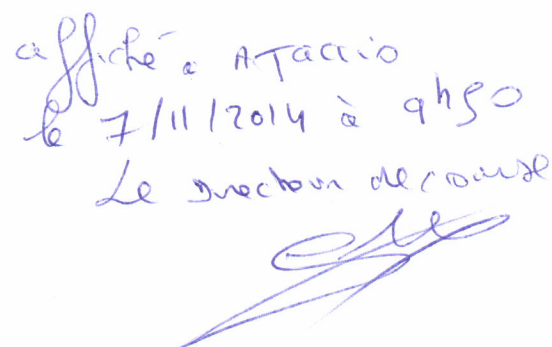 affiché à AJacciO
le 7/11/2014 à 9h50
Le Directeur de course